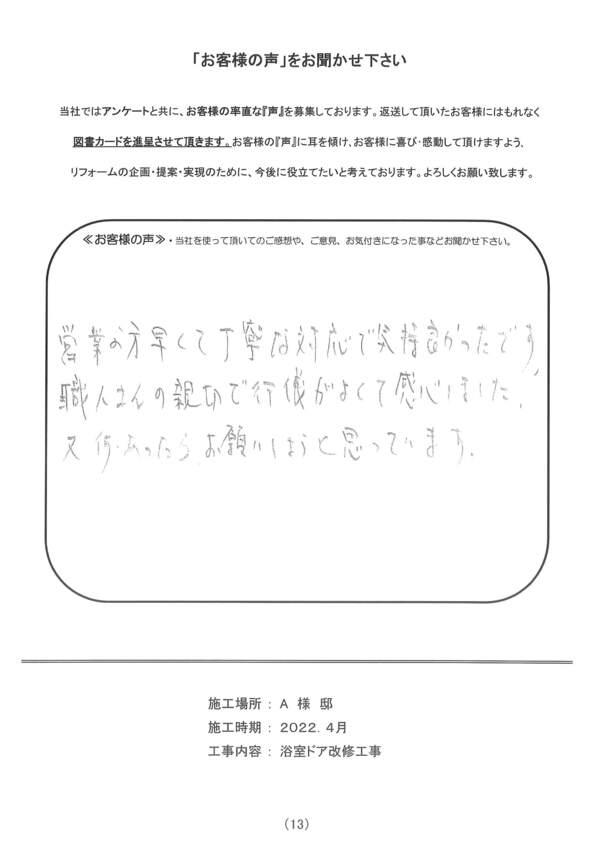 「お客様の声」をお聞かせ下さい
当社ではアンケートと共に、お客様の率直な『声』を募集しております。返送して頂いたお客様にはもれなく
図書カードを進呈させて頂きます。お客様の『声』に耳を傾け、お客様に喜び・感動して頂けますよう、
リフォームの企画・提案・実現のために、今後に役立てたいと考えております。よろしくお願い致します。
≪お客様の声≫・当社を使って頂いてのご感想や、ご意見、お気付きになった事などお聞かせ下さい。
営業の方早くて丁寧な対応で気持良かったです、
職人さんの親切で行儀がよくて感心しました、
又何かあったらお願いしようと思っています。
施工場所 : A 様 邸
施工時期 : 2022. 4月
工事内容 : 浴室ドア改修工事
(13)